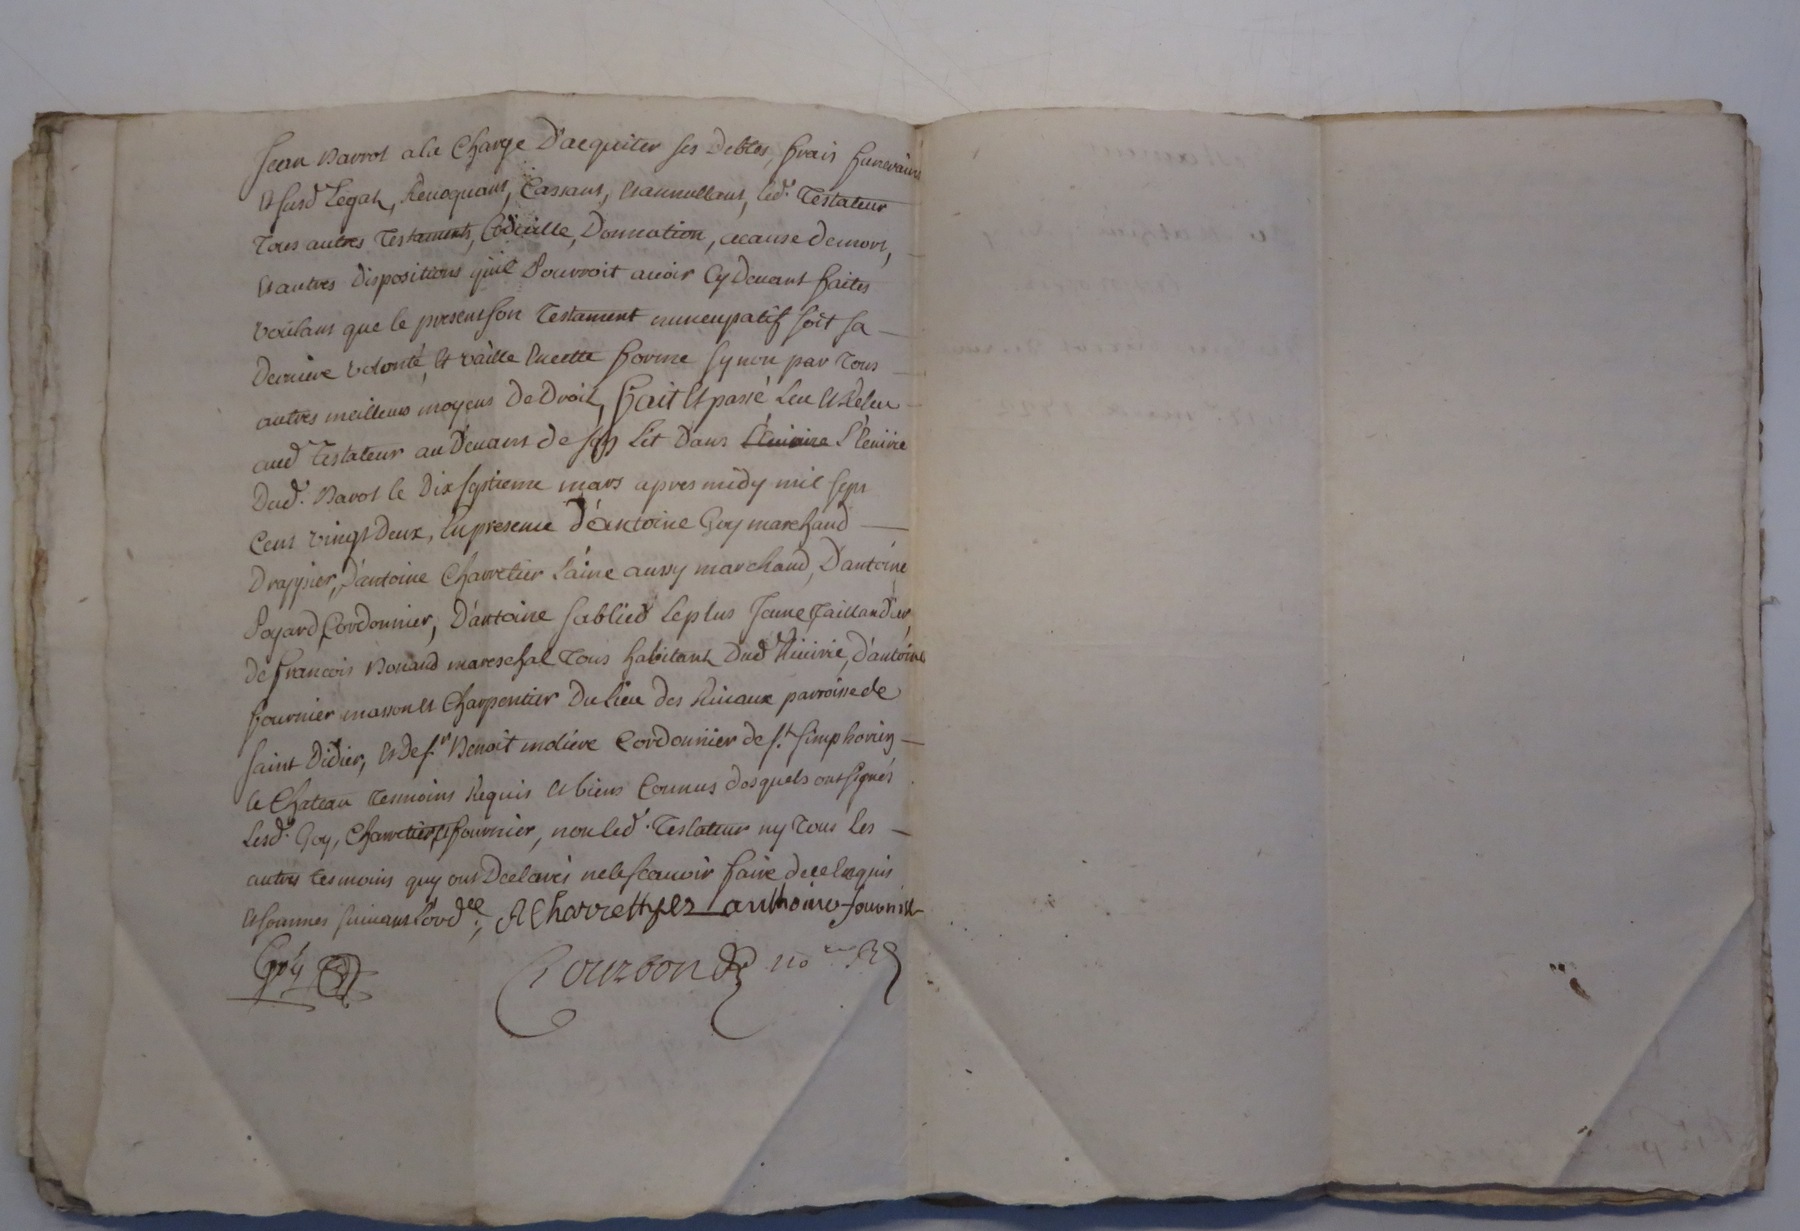 Jean Barrot a la Charge D'acquiter ses Debtes, frais funeraires
et susd Legats, Revoquant, Cassant, et annullant, led. Testateur
Tous autres Testaments, Codicille, Donnation, acause de mort,
et autres dispositions quil Pourroit avoir Cy Devant faites
voulant que le present son Testament nuncupatif soit sa
Derniere volonté, et vaille En cette forme synon par Tous
autres meilleurs moyens De Droit, fait et passé Leu et Releu
aud Testateur au Devant de son Lit Dans
Dud. Barot le Dix septieme mars apres midy mil sept
Cent vingt Deux, En presence d'antoine Goy marchand
Drappier, D'antoine Charretier L'ainé aussy marchand, D'antoine
Poyard Cordonnier, D'antoine Sablier le plus Jeune Taillandier,
de françois mareschal Tous habitants Dud Riverie, d'antoine
fournier masson et Charpentier Du Lieu des Rivaux parroisse de
Saint Didier, et de Sr Benoit moliere Cordonnier de St Simphorien
le Chateau tesmoins Requis et biens Connus desquels ont signés
Lesd. Goy, Charretier et fournier, non led. Testateur ny Tous les
autres tesmoins quy ont Declarés ne le scavoir faire de ce Enquis
et sommes suivant L'ord.ce, A Charrettyer anthoine fournier
Goy Courbon No.re R.